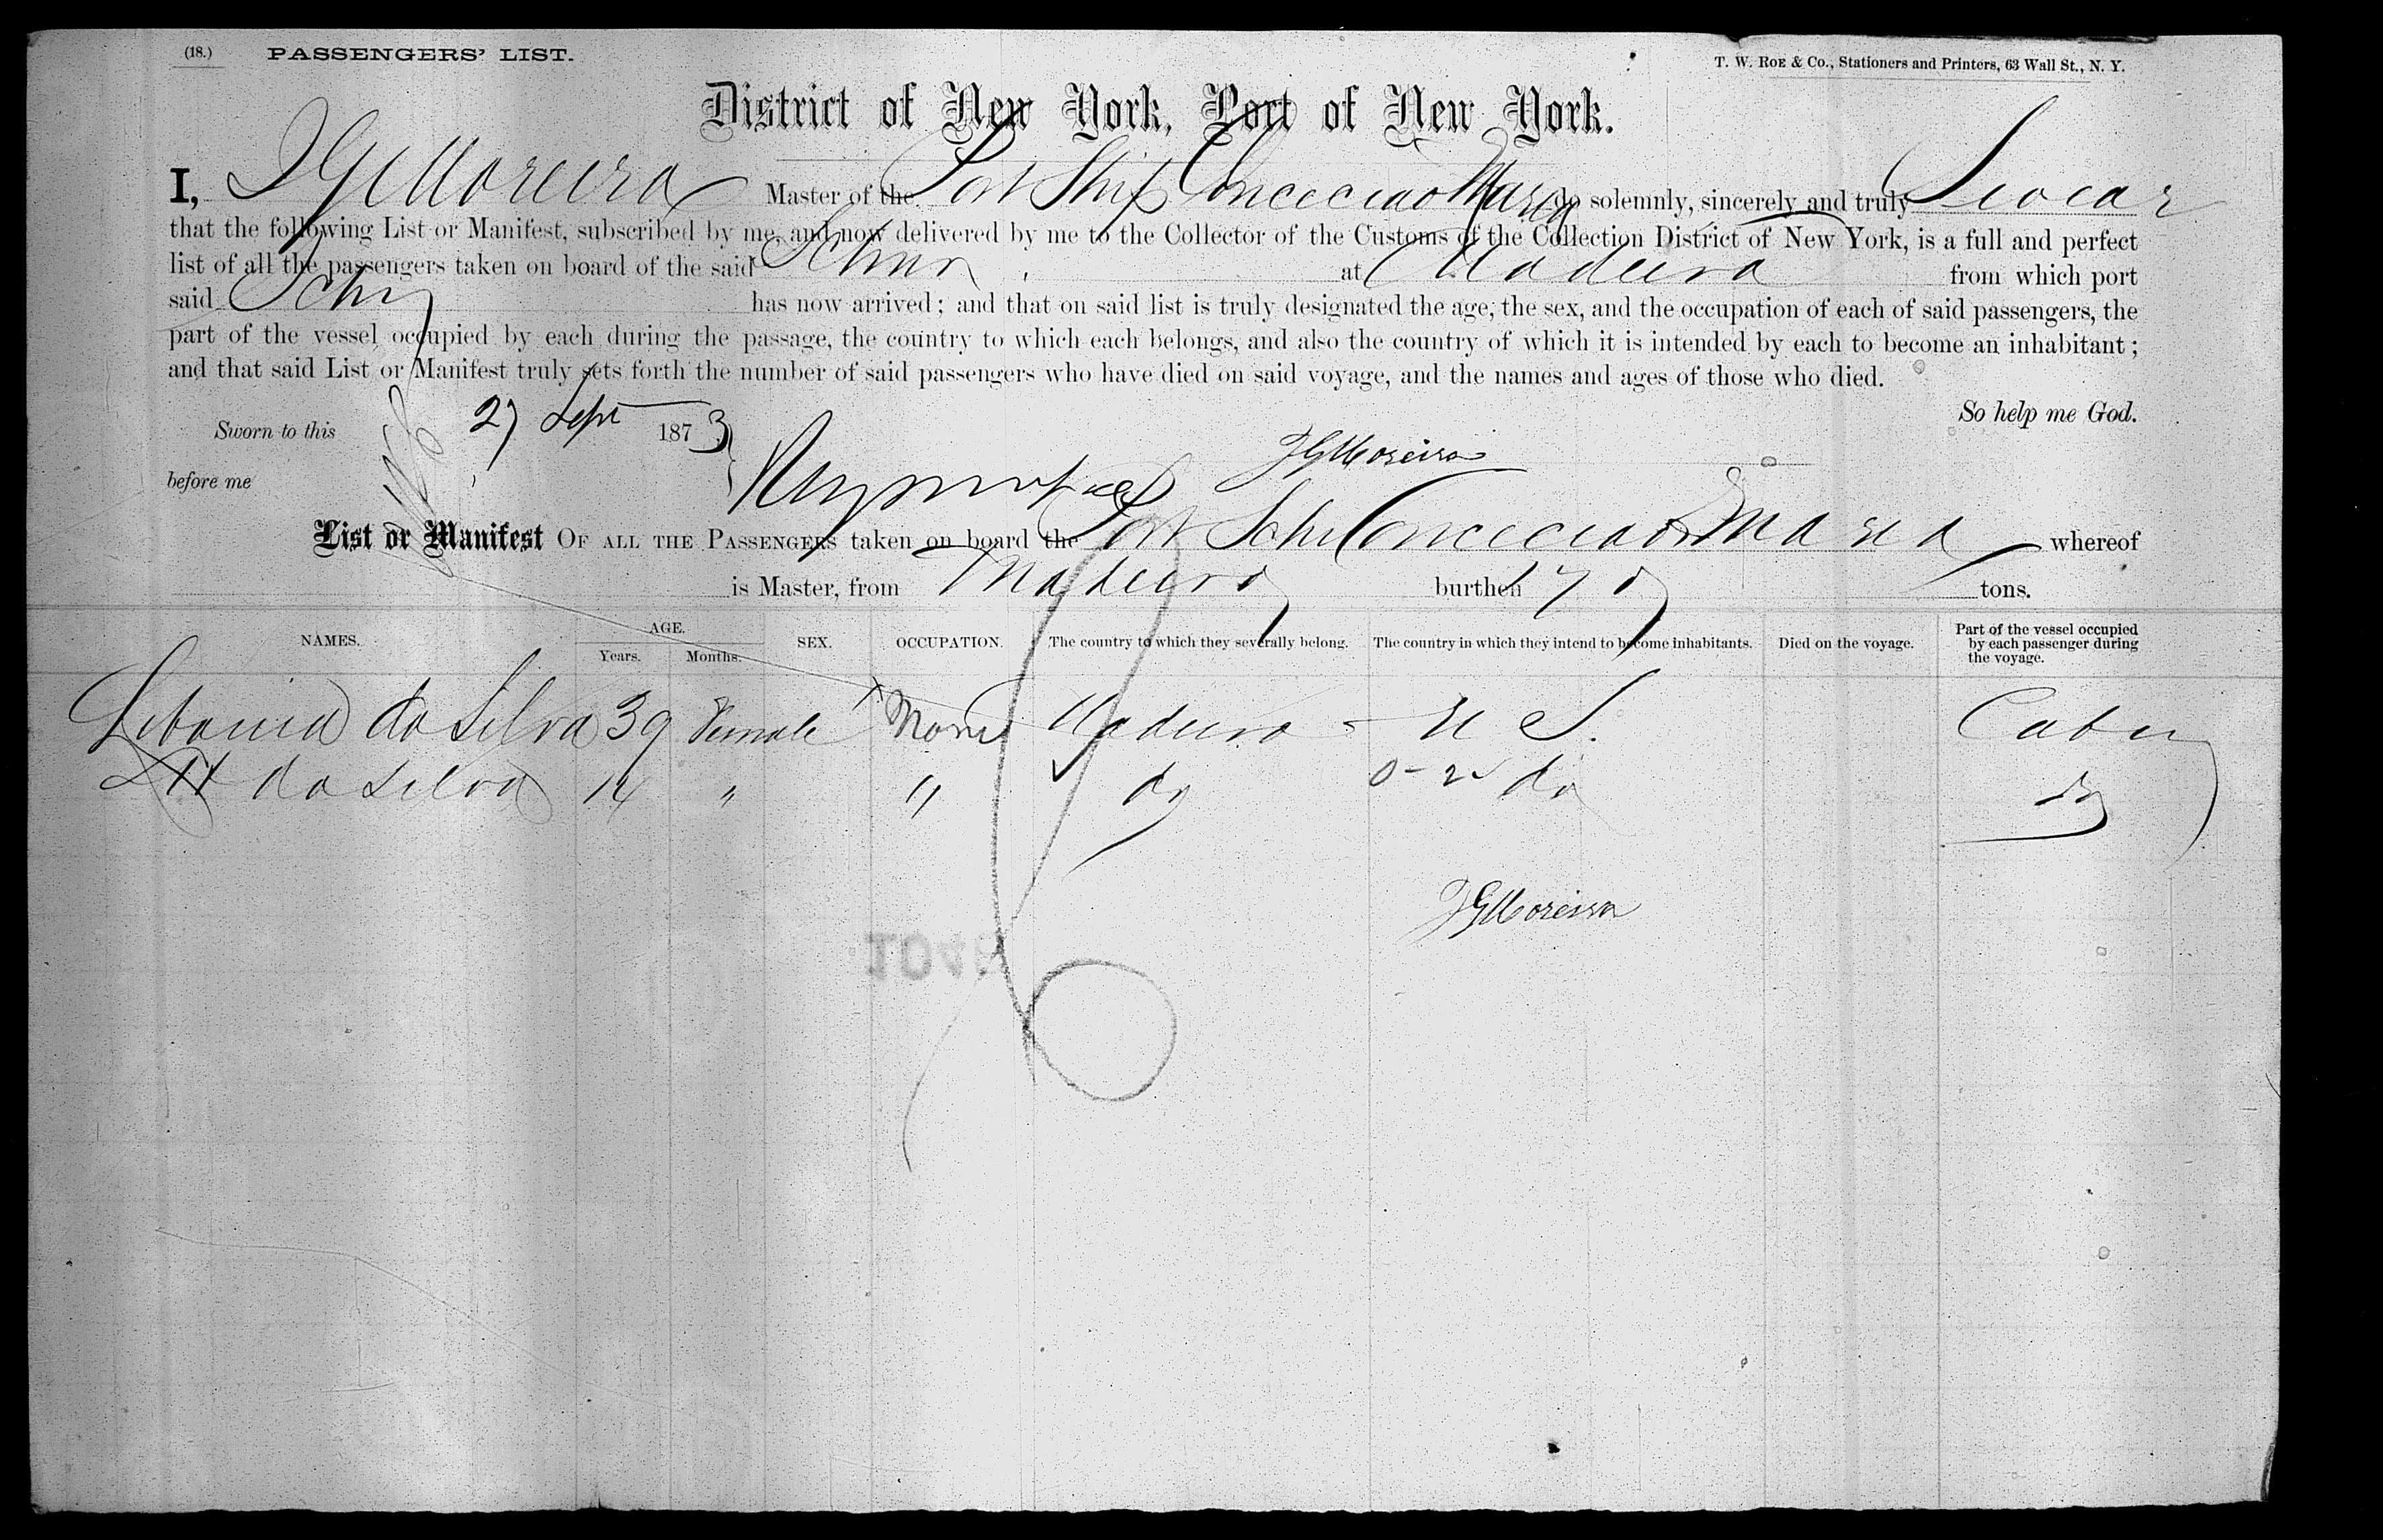 (18.) PASSENGERS' LIST. T. W. ROE & CO., Stationers and Printers, 63 Wall St., N. Y.
District of New York, Port of New York.
I, J G Moreira Master of the Port Ship Conceciao Maria do solemnly, sincerely and truly Swear
that the following List or Manifest, subscribed by me, and now delivered by me to the Collector of the Customs of the Collection District of New York, is a full and perfect
list of all the passengers taken on board of the said Schnr at Madeira from which port
said Schr has now arrived; and that on said list is truly designated the age, the sex, and the occupation of each of said passengers, the
part of the vessel occupied by each during the passage, the country to which each belongs, and also the country of which it is intended by each to become an inhabitant;
and that said List or Manifest truly sets forth the number of said passengers who have died on said voyage, and the names and ages of those who died.
So help me God.
Sworn to this 27 Sept 1873
J G Moreira
before me
List or Manifest OF ALL THE PASSENGERS taken on board the Port Schr Conceciao Maria whereof
is Master, from Madeira burthen tons.
NAMES. AGE. Years. Months. SEX. OCCUPATION. The country to which they severally belong. The country in which they intend to become inhabitants. Died on the voyage. Part of the vessel occupied by each passenger during the voyage.
Libania da Silva 39 Female None Madeira U S. Cabin
da Silva 14 " " do do do
J G Moreira